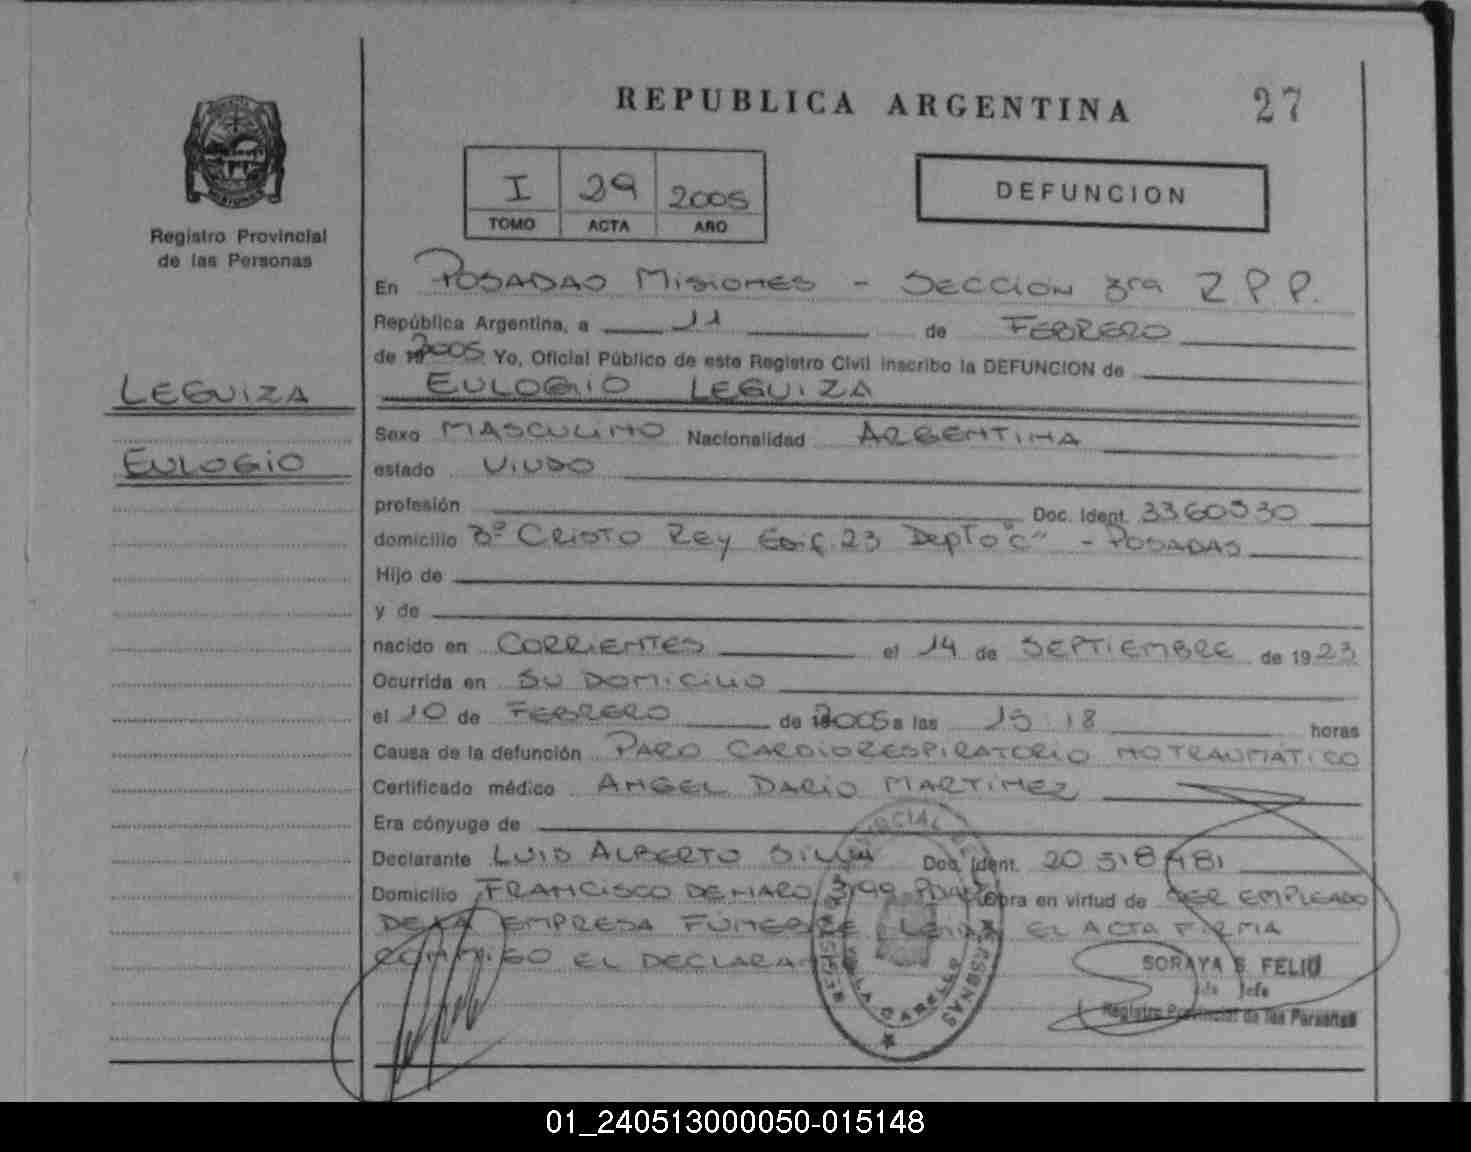 REPUBLICA ARGENTINA
27
Registro Provincial
de las Personas
I 29 2005
TOMO ACTA AÑO
DEFUNCION
En POSADAS MISIONES - SECCION 3ra Z P P.
República Argentina, a 11 de FEBRERO
de 2005 Yo, Oficial Público de este Registro Civil inscribo la DEFUNCION de
EULOGIO LEGUIZA
LEGUIZA
EULOGIO
Sexo MASCULINO Nacionalidad ARGENTINA
estado VIUDO
profesión Doc. Ident. 3360530
domicilio Bº CRISTO REY EDIF. 23 DEPTO "C" - POSADAS
Hijo de
y de
nacido en CORRIENTES el 14 de SEPTIEMBRE de 1923
Ocurrida en SU DOMICILIO
el 10 de FEBRERO de 2005 a las 15:18 horas
Causa de la defunción PARO CARDIORESPIRATORIO NO TRAUMATICO
Certificado médico ANGEL DARIO MARTINEZ
Era cónyuge de
Declarante LUIS ALBERTO SILVA Doc. Ident. 20 518 481
Domicilio FRANCISCO DE HARO 3199 obra en virtud de SER EMPLEADO
DE LA EMPRESA FUNEBRE EL ACTA FIRMA
CONMIGO EL DECLARA
REGISTRO PROVINCIAL DE LAS PERSONAS
SORAYA S. FELIU
Jefe
Registro Provincial de las Personas
01_240513000050-015148